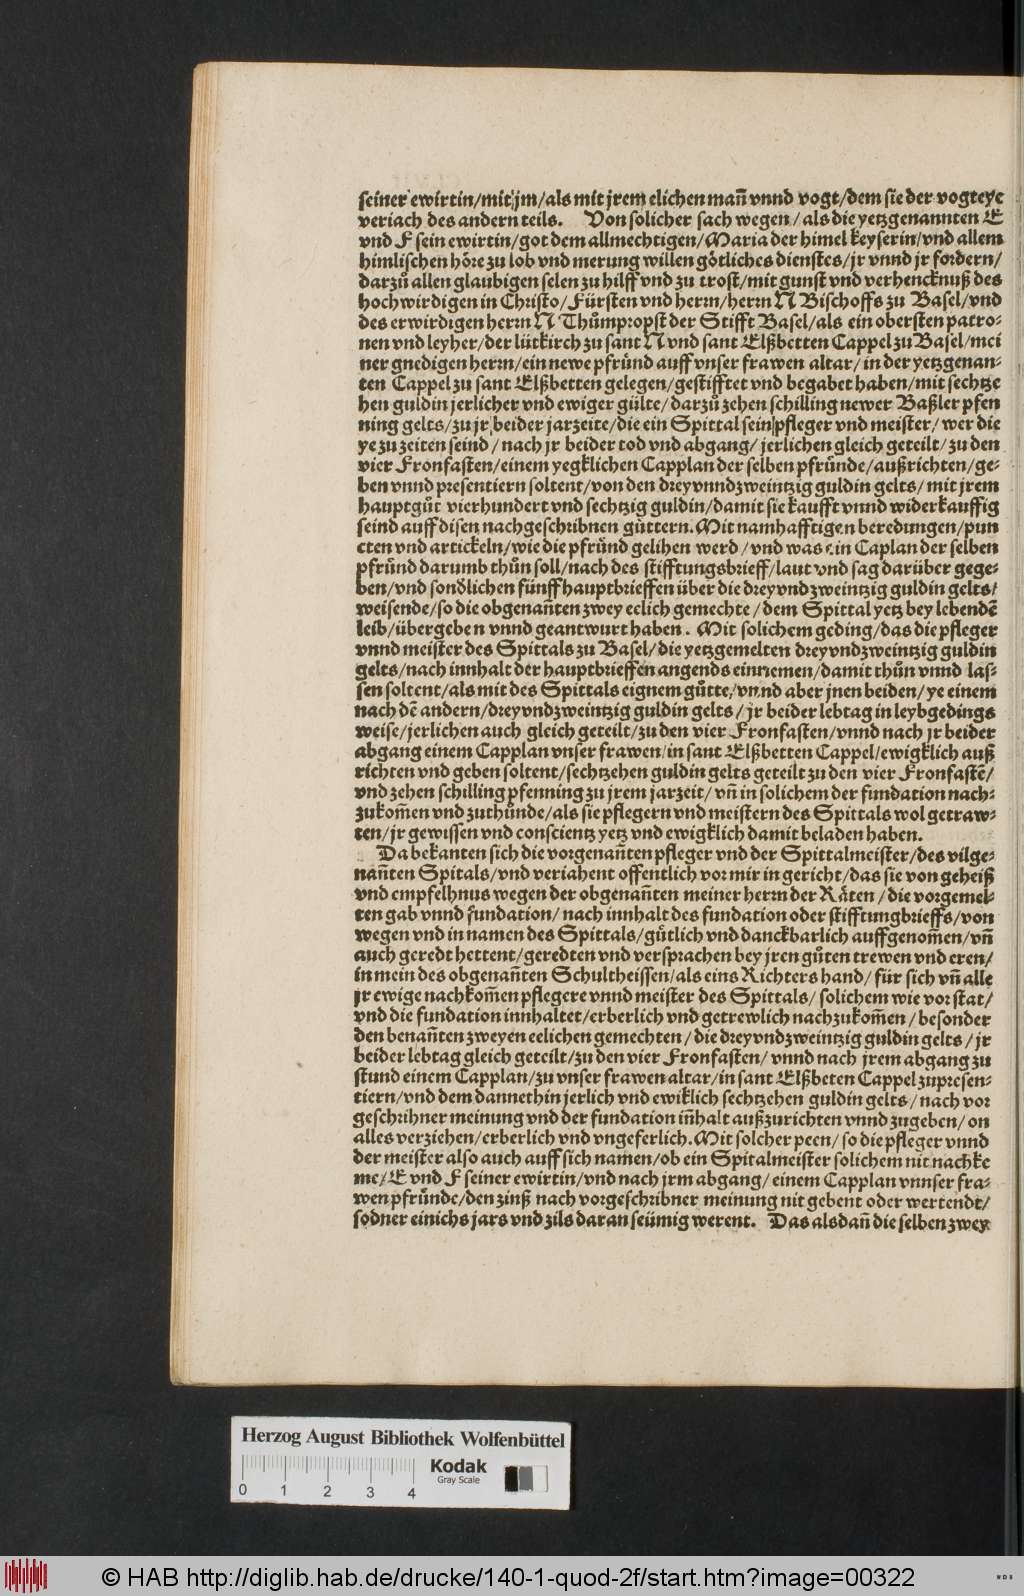 seiner ewirtin/mit jm/als mit jrem elichen mañ vnnd vogt/dem sie der vogteye
veriach des andern teils. Von solicher sach wegen/als die yetzgenannten E
vnd F sein ewirtin/got dem allmechtigen/Maria der himel keyserin/vnd allem
himlischen höre zu lob vnd merung willen götliches dienstes/jr vnnd jr fordern/
darzů allen glaubigen selen zu hilff vnd zu trost/mit gunst vnd verhencknuß des
hochwirdigen in Christo/Fürsten vnd herrn/herrn N Bischoffs zu Basel/vnd
des erwirdigen herrn N Thůmpropst der Stifft Basel/als ein obersten patro⸗
nen vnd leyher/der lütkirch zu sant N vnd sant Elßbetten Cappel zu Basel/mei
ner gnedigen herrn/ein newe pfründ auff vnser frawen altar/in der yetzgenan⸗
ten Cappel zu sant Elßbetten gelegen/gestifftet vnd begabet haben/mit sechtze
hen guldin jerlicher vnd ewiger gülte/darzů zehen schilling newer Baßler pfen
ning gelts/zu jr beider jarzeite/die ein Spittal sein pfleger vnd meister/wer die
ye zu zeiten seind/nach jr beider tod vnd abgang/jerlichen gleich geteilt/zu den
vier Fronfasten/einem yegklichen Capplan der selben pfründe/außrichten/ge⸗
ben vnnd presentiern soltent/von den drey vnnd zweintzig guldin gelts/mit jrem
hauptgůt vierhundert vnd sechtzig guldin/damit sie kaufft vnnd widerkauffig
seind auff disen nachgeschribnen güttern. Mit namhafftigen beredungen/pun
cten vnd artickeln/wie die pfründ gelihen werd/vnd was ein Caplan der selben
pfründ darumb thůn soll/nach des stifftungsbrieff/laut vnd sag darüber gege⸗
ben/vnd sondlichen fünff hauptbrieffen über die drey vnd zweintzig guldin gelts/
weisende/so die obgenañten zwey eelich gemechte/dem Spittal yetz bey lebendē
leib/übergeben vnnd geantwurt haben. Mit solichem geding/das die pfleger
vnnd meister des Spittals zu Basel/die yetzgemelten drey vnd zweintzig guldin
gelts/nach innhalt der hauptbrieffen angends einnemen/damit thůn vnnd las⸗
sen soltent/als mit des Spittals eignem gůtte/vnnd aber jnen beiden/ye einem
nach dē andern/drey vnd zweintzig guldin gelts/jr beider lebtag in leybgedings
weise/jerlichen auch gleich geteilt/zu den vier Fronfasten/vnnd nach jr beider
abgang einem Capplan vnser frawen/in sant Elßbetten Cappel/ewigklich auß
richten vnd geben soltent/sechtzehen guldin gelts geteilt zu den vier Fronfastē/
vnd zehen schilling pfenning zu jrem jarzeit/vñ in solichem der fundation nach⸗
zukom̃en vnd zuthůnde/als sie pflegern vnd meistern des Spittals wol getraw⸗
ten/jr gewissen vnd conscientz yetz vnd ewigklich damit beladen haben.
Da bekanten sich die vorgenañten pfleger vnd der Spittalmeister/des vilge⸗
nañten Spitals/vnd veriahent offentlich vor mir in gericht/das sie von geheiß
vnd empfelhnus wegen der obgenañten meiner herrn der Räten/die vorgemel⸗
ten gab vnnd fundation/nach innhalt des fundation oder stifftungbrieffs/von
wegen vnd in namen des Spittals/gütlich vnd danckbarlich auffgenom̃en/vñ
auch geredt hettent/geredten vnd versprachen bey jren gůten trewen vnd eren/
in mein des obgenañten Schultheissen/als eins Richters hand/für sich vñ alle
jr ewige nachkom̃en pflegere vnnd meister des Spittals/solichem wie vor stat/
vnd die fundation innhaltet/erberlich vnd getrewlich nachzukom̃en/besonder
den benañten zweyen eelichen gemechten/die drey vnd zweintzig guldin gelts/jr
beider lebtag gleich geteilt/zu den vier Fronfasten/vnnd nach jrem abgang zu
stund einem Capplan/zu vnser frawen altar/in sant Elßbeten Cappel zupresen⸗
tiern/vnd dem dannethin jerlich vnd ewiklich sechtzehen guldin gelts/nach vor
geschribner meinung vnd der fundation iñhalt außzurichten vnnd zugeben/on
alles verziehen/erberlich vnd vngeferlich. Mit solcher peen/so die pfleger vnnd
der meister also auch auff sich namen/ob ein Spitalmeister solichem nit nachke
me/E vnd F seiner ewirtin/vnd nach jrm abgang/einem Capplan vnnser fra⸗
wen pfründe/den zinß nach vorgeschribner meinung nit gebent oder wertendt/
sodner einichs jars vnd zils daran seümig werent. Das alsdañ die selben zwey
Herzog August Bibliothek Wolfenbüttel
Kodak
Gray Scale
0 1 2 3 4
© HAB http://diglib.hab.de/drucke/140-1-quod-2f/start.htm?image=00322